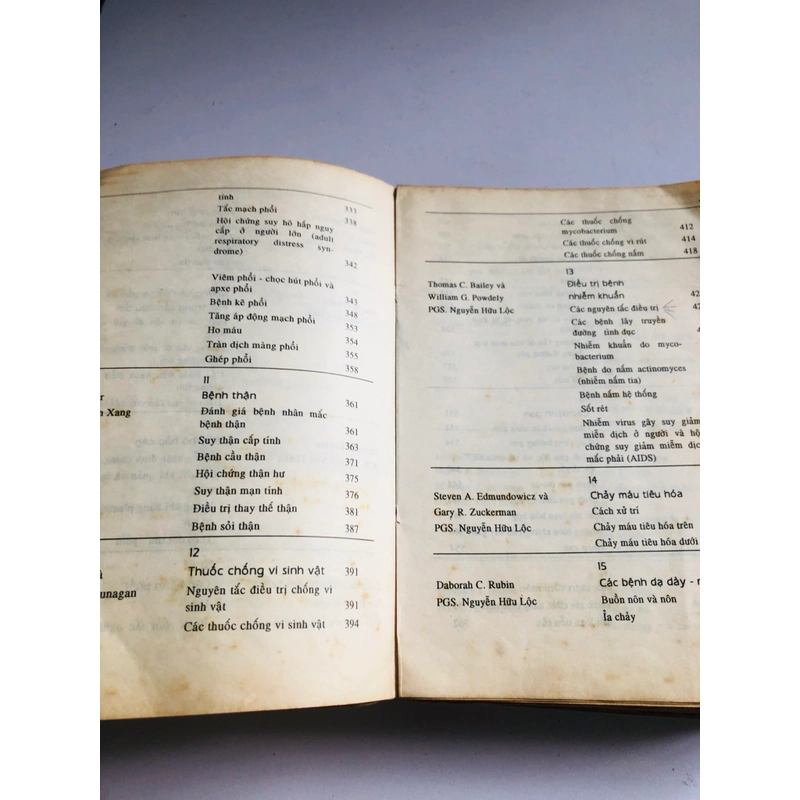 tính
Tắc mạch phổi 333
Hội chứng suy hô hấp nguy 338
cấp ở người lớn (adult
respiratory distress syn-
drome)
342
Viêm phổi - chọc hút phổi và
apxe phổi
Bệnh kẽ phổi 343
Tăng áp động mạch phổi 348
Ho máu 353
Tràn dịch màng phổi 354
Ghép phổi 355
358
11
Bệnh thận 361
Xang Đánh giá bệnh nhân mắc
bệnh thận 361
Suy thận cấp tính 363
Bệnh cầu thận 371
Hội chứng thận hư 375
Suy thận mạn tính 376
Điều trị thay thế thận 381
Bệnh sỏi thận 387
12
Thuốc chống vi sinh vật 391
unagan Nguyên tắc điều trị chống vi
sinh vật 391
Các thuốc chống vi sinh vật 394
Các thuốc chống
mycobacterium 412
Các thuốc chống vi rút 414
Các thuốc chống nấm 418
13
Thomas C. Bailey và Điều trị bệnh
William G. Powdely nhiễm khuẩn 42
PGS. Nguyễn Hữu Lộc Các nguyên tắc điều trị 42
Các bệnh lây truyền
đường tình dục
Nhiễm khuẩn do myco-
bacterium
Bệnh do nấm actinomyces
(nhiễm nấm tia)
Bệnh nấm hệ thống
Sốt rét
Nhiễm virus gây suy giảm
miễn dịch ở người và hội
chứng suy giảm miễm dịc
mắc phải (AIDS)
14
Steven A. Edmundowicz và Chảy máu tiêu hóa
Gary R. Zuckerman Cách xử trí
PGS. Nguyễn Hữu Lộc Chảy máu tiêu hóa trên
Chảy máu tiêu hóa dưới
15
Daborah C. Rubin Các bệnh dạ dày -
PGS. Nguyễn Hữu Lộc Buồn nôn và nôn
Ỉa chảy